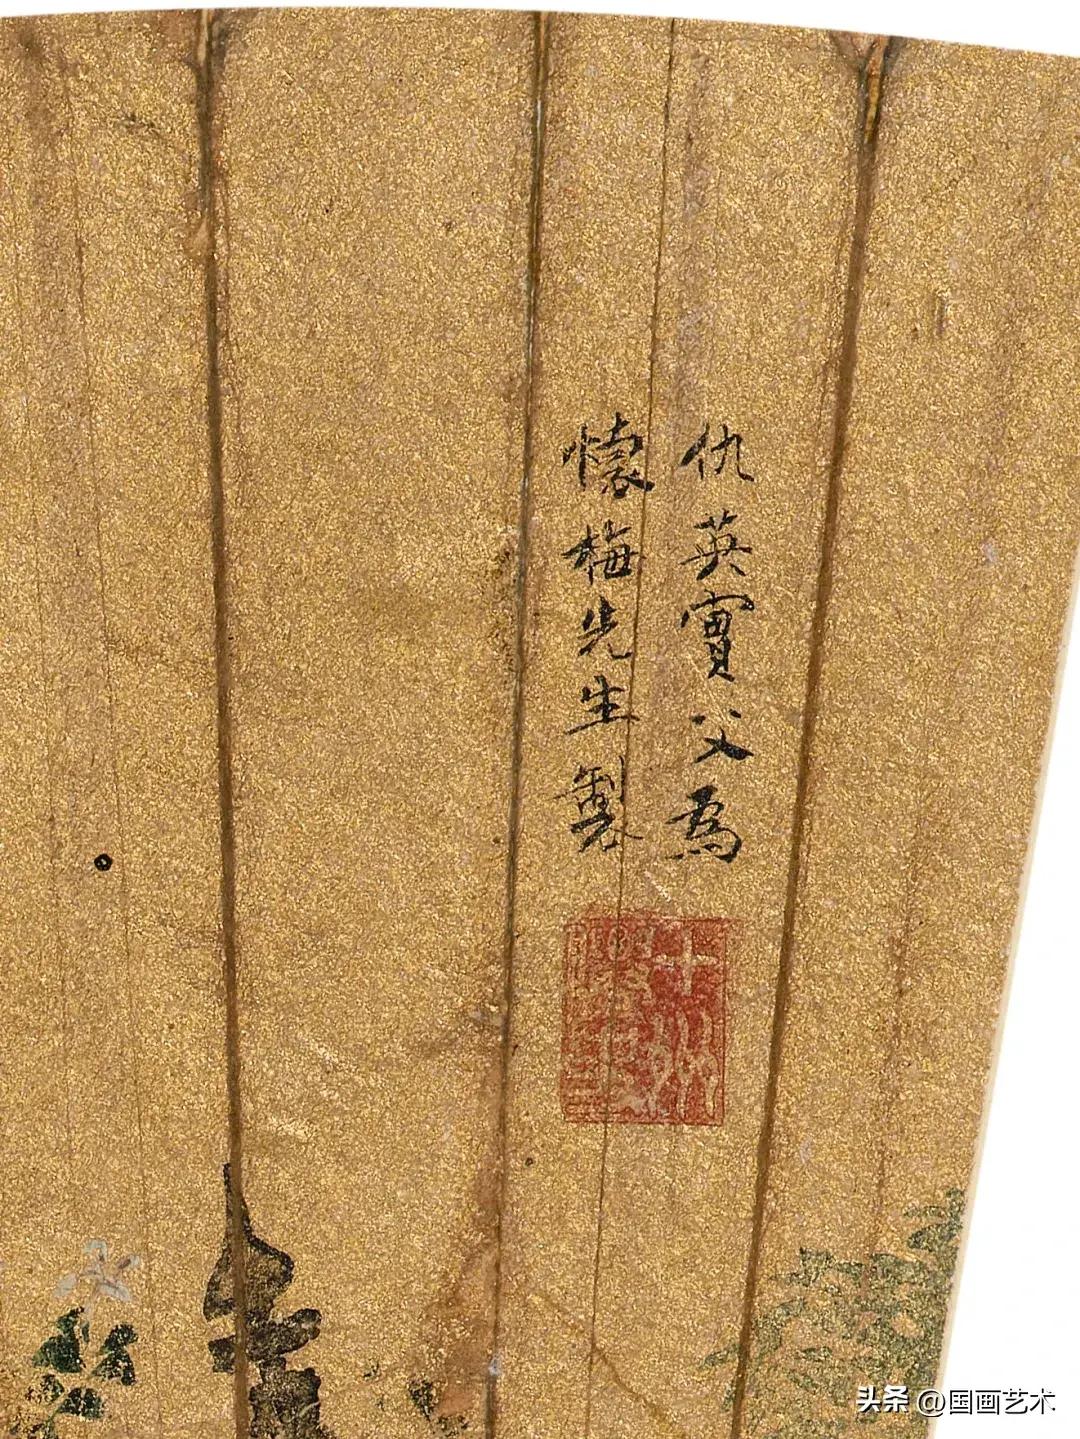 仇英實父爲
懷梅先生製
十州
頭条 @国画艺术